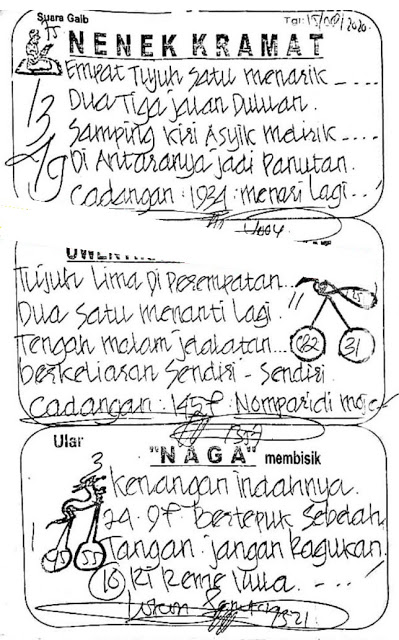 Suara Gaib
Tgl: 15/09/2020
75
NENEK KRAMAT
Empat Tujuh Satu menarik ....
Dua Tiga jalan Duluan.
13
Samping kiri Asyik melirik ....
49
Di Antaranya jadi Panutan.
Cadangan: 1934: menari lagi..
Tujuh Lima Di Perempatan...
11
25
Dua Satu menanti lagi.
Tengah malam jelalatan...
682
31
berkeliaran Sendiri - Sendiri.
Cadangan: 1457
Ular
"NAGA" membisik
3
Kenangan indahnya.
24.97 Bertepuk Sebelah
1
Tangan: jangan Ragukan.
95
55
16